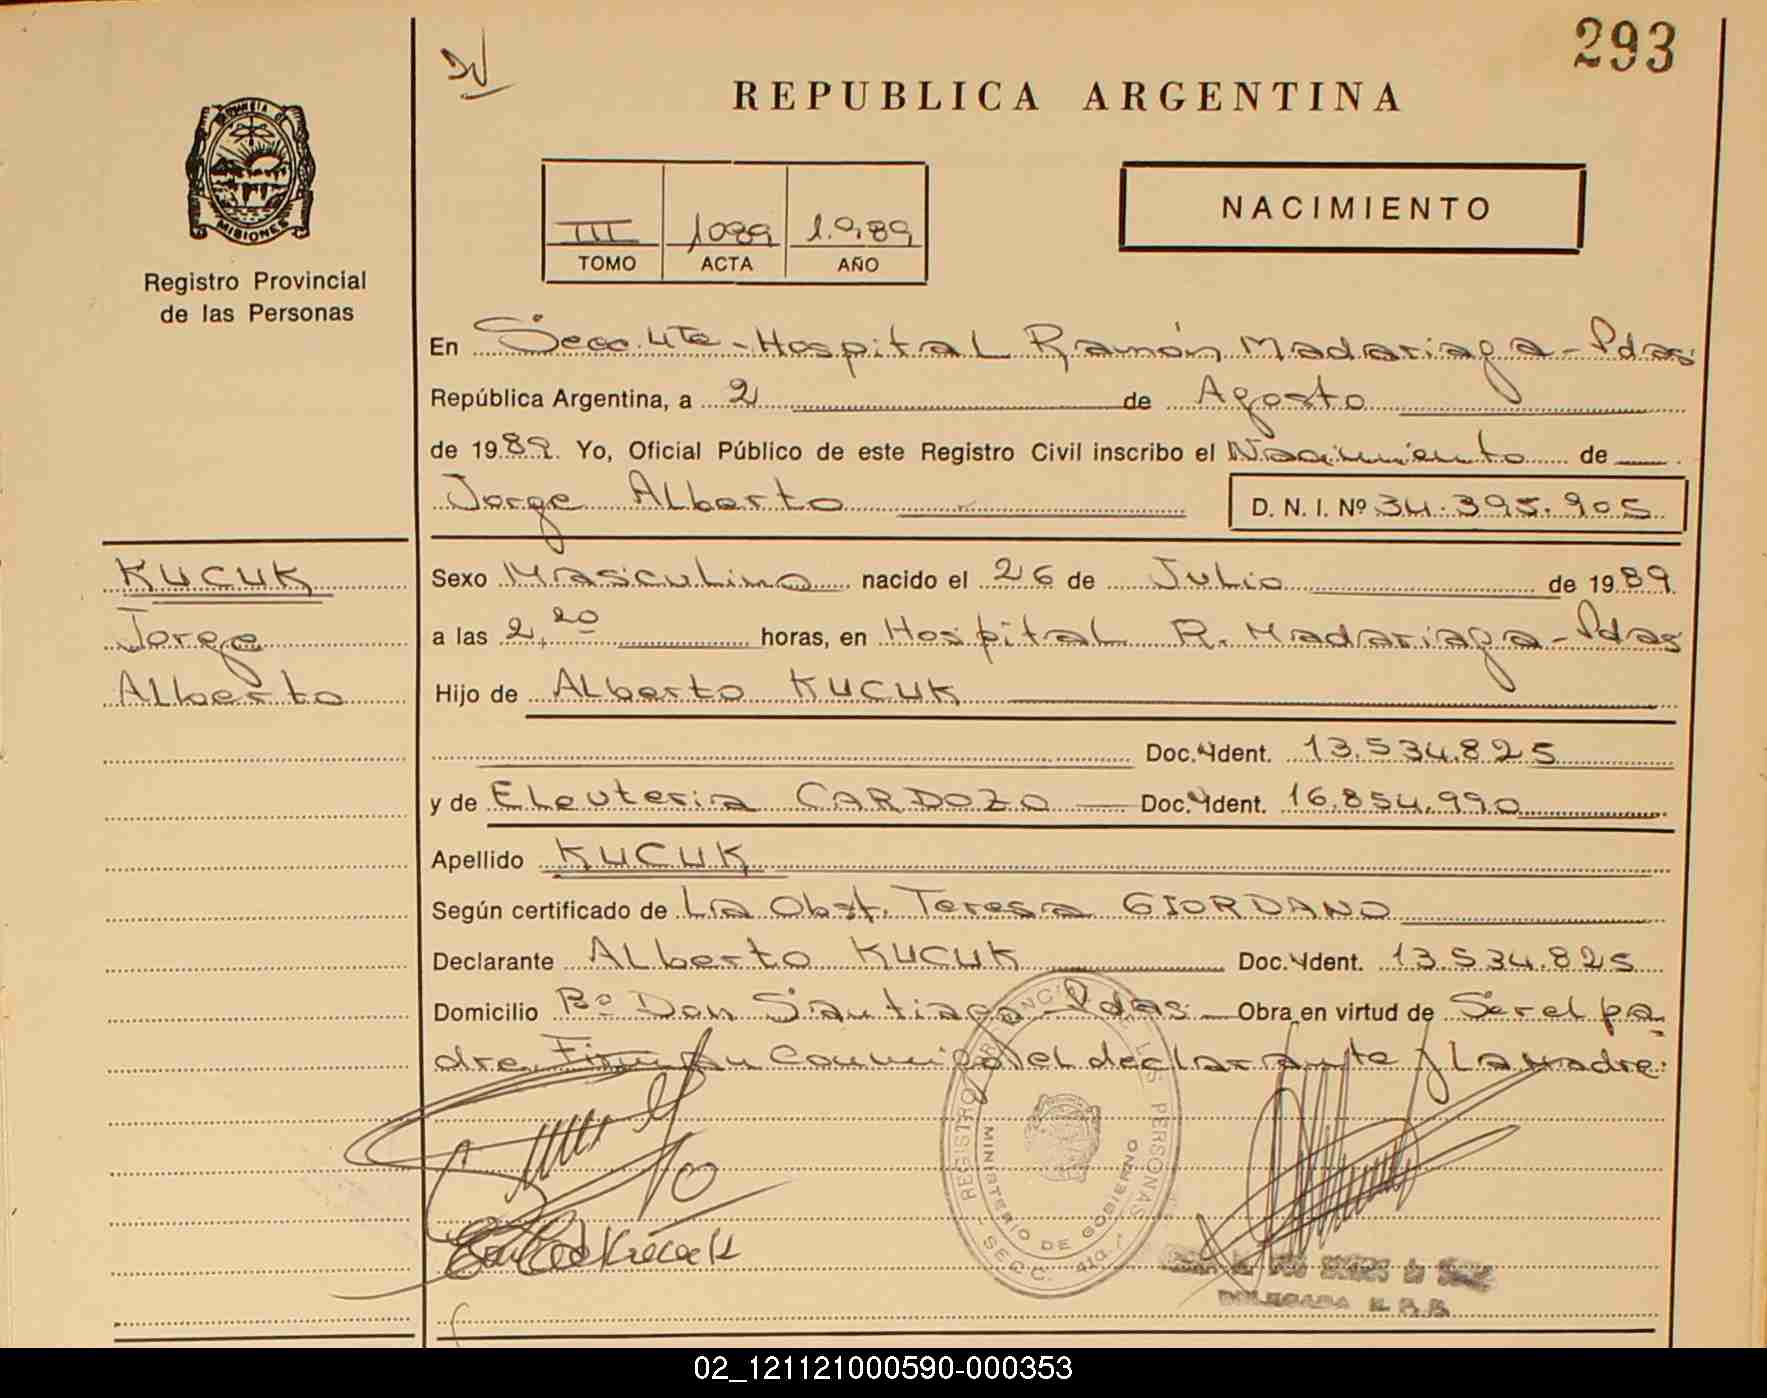 293
REPUBLICA ARGENTINA
PROVINCIA DE
MISIONES
Registro Provincial
de las Personas
NACIMIENTO
III 1089 1.989
TOMO ACTA AÑO
En Secc. 4ta - Hospital Ramón Madariaga - Pdas
República Argentina, a 2 de Agosto
de 1989. Yo, Oficial Público de este Registro Civil inscribo el Nacimiento de
Jorge Alberto D. N. I. Nº 34.395.905
KUCUK
Jorge
Alberto
Sexo Masculino nacido el 26 de Julio de 1989.
a las 2,20 horas, en Hospital R. Madariaga - Pdas
Hijo de Alberto KUCUK
Doc. Ident. 13.534.825
y de Eleuteria CARDOZO Doc. Ident. 16.854.990
Apellido KUCUK
Según certificado de La Obst. Teresa GIORDANO
Declarante Alberto KUCUK Doc. Ident. 13.534.825
Domicilio Bº Don Santiago - Pdas - Obra en virtud de Ser el pa
dre. Firman Conmigo el declarante y La madre.
REGISTRO PROVINCIAL DE LAS PERSONAS
MINISTERIO DE GOBIERNO
- SECC. 4ta. -
DELEGADA
02_121121000590-000353